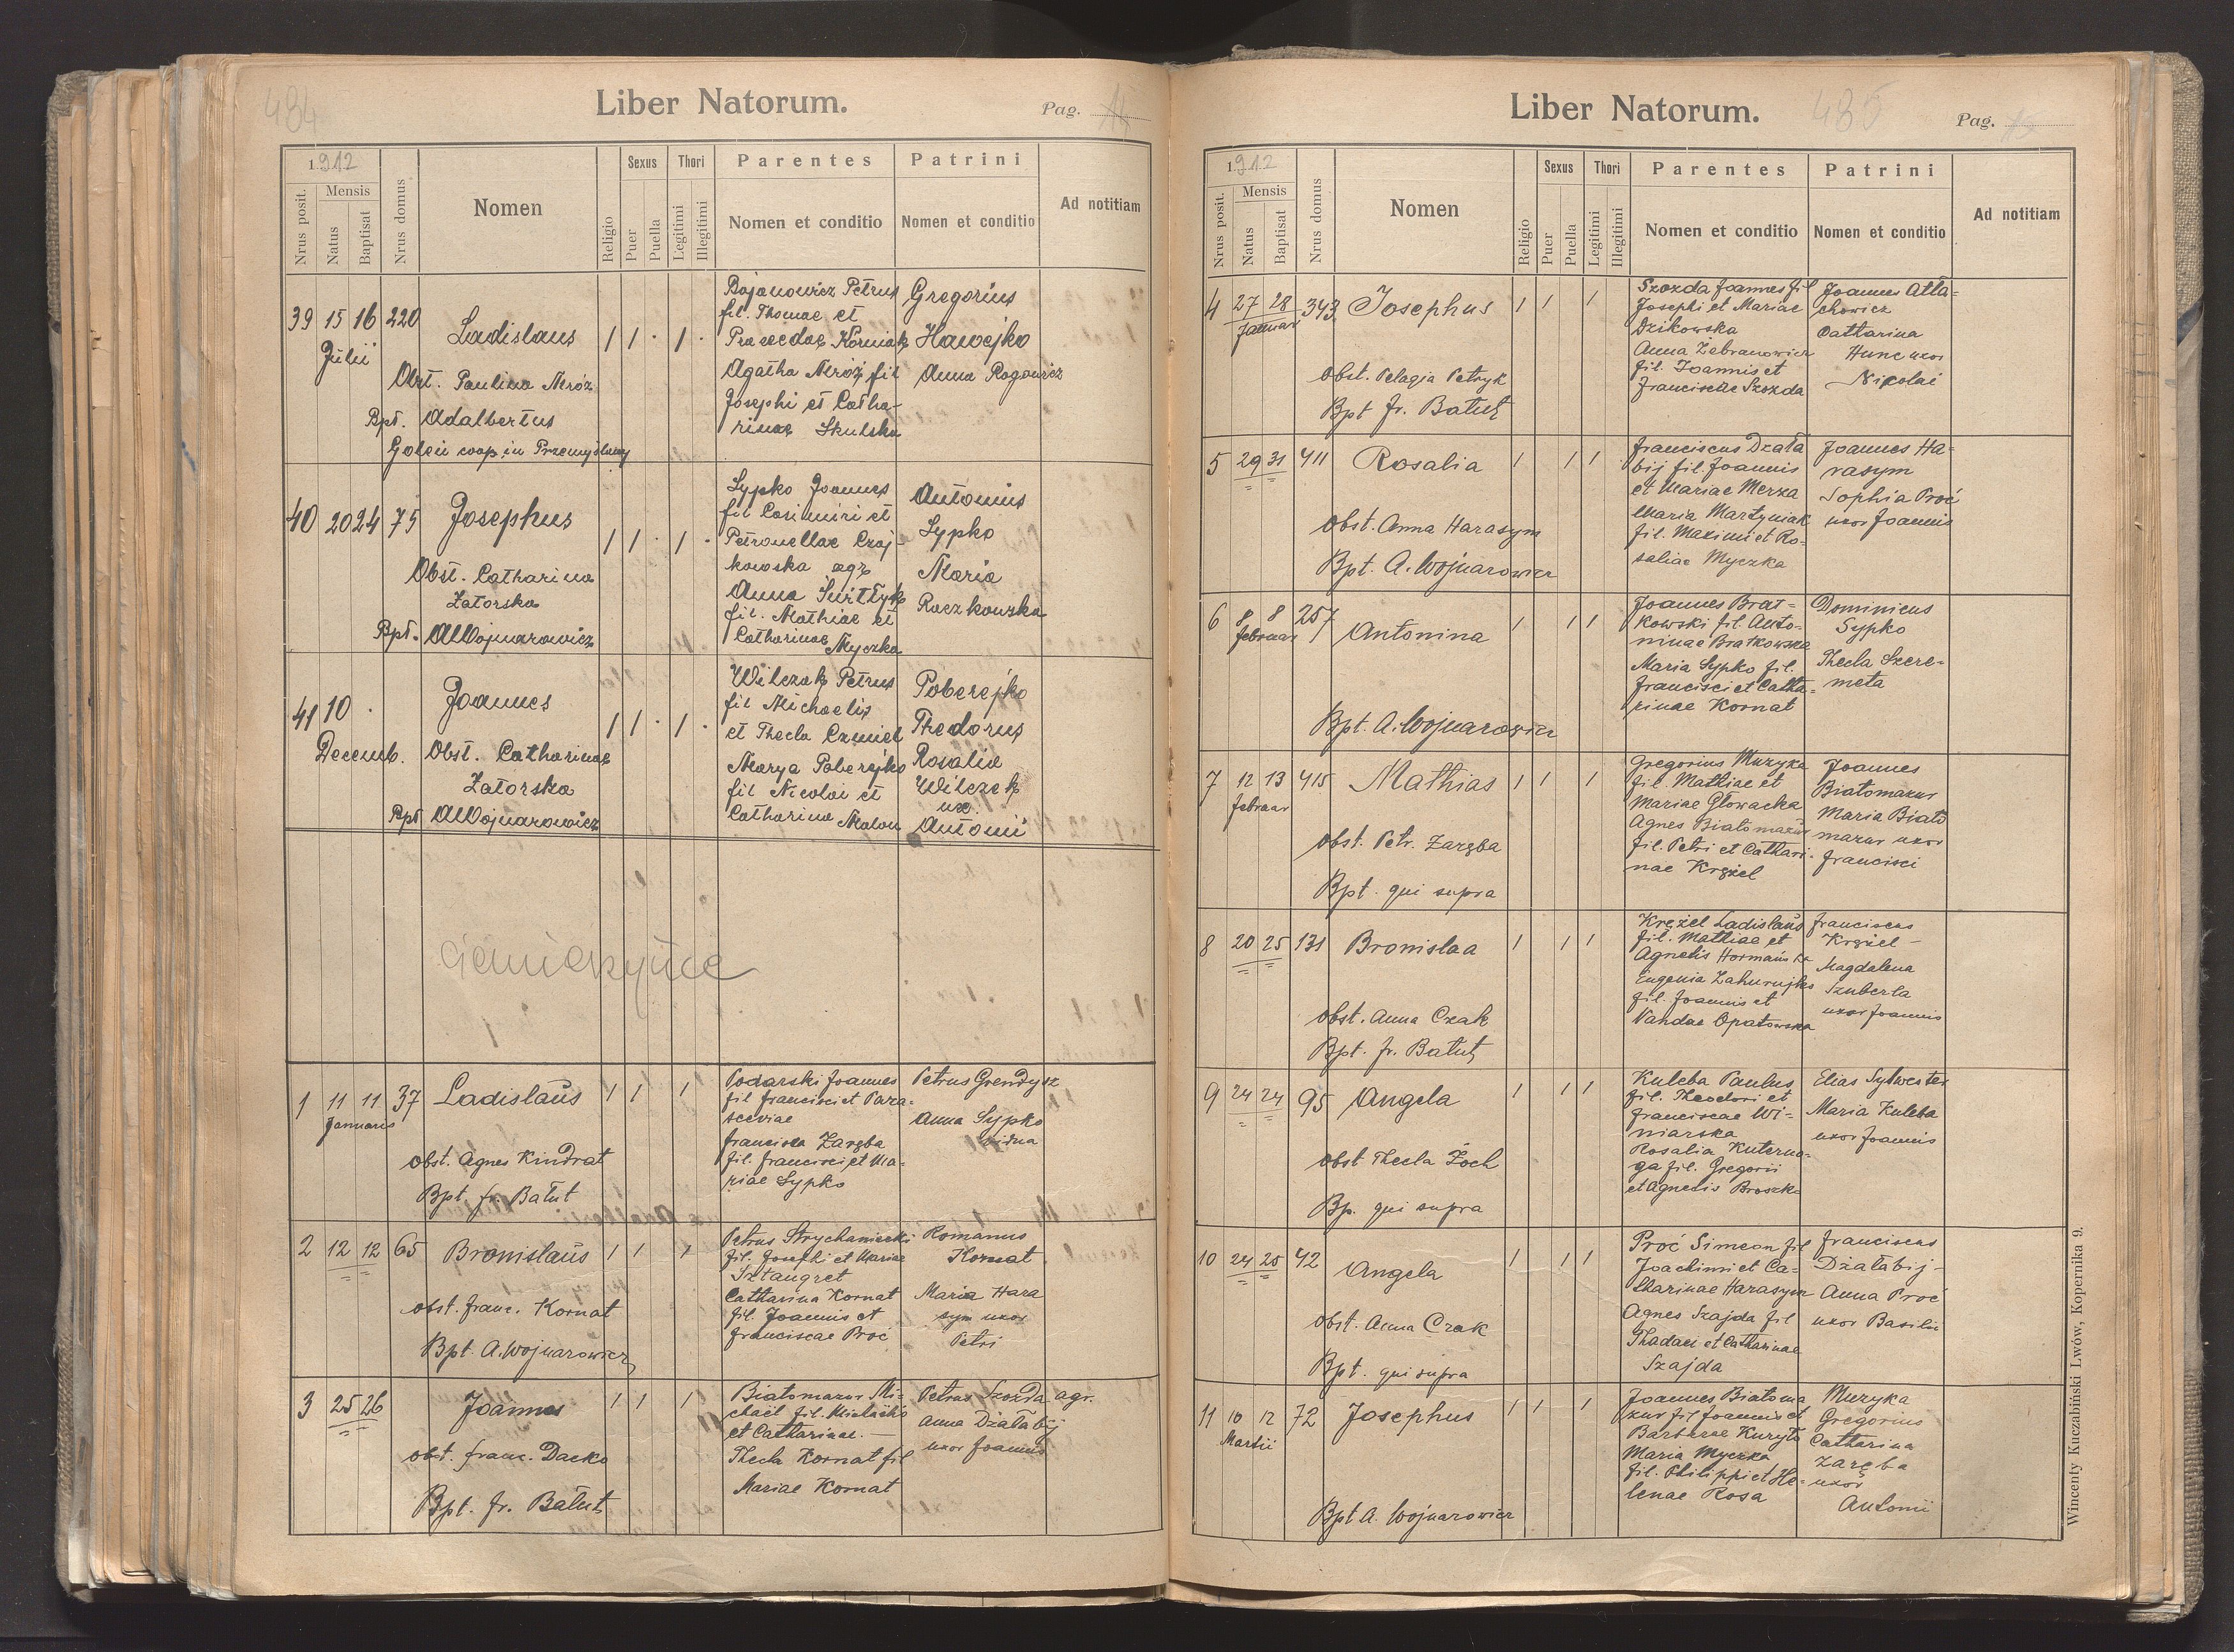 484
Liber Natorum.
Pag. 11
1912
Nrus posit.
Mensis
Natus
Baptisat
Nrus domus
Nomen
Religio
Sexus
Puer
Puella
Thori
Legitimi
Illegitimi
Parentes
Nomen et conditio
Patrini
Nomen et conditio
Ad notitiam
39 15 16 220
Julii
Ladislaus
1 1 · 1 ·
Obst. Paulina Mróz
Bpt. Adalbertus
Goleń coop. in Przemyślany
Bojanowicz Petrus
fil. Thomae et
Praxedae Korniak
Agatha Mróz fil
Josephi et Catha-
rinae Skulska
Gregorius
Hawejko
Anna Rogowicz
40 20 24 75
Josephus
1 1 · 1 ·
Obst. Catharina
Zatorska
Bpt. AWojnarowicz
Sypko Joannes
fil Casimiri et
Petronellae Czaj-
kowska agr
Anna
fil. Mathiae et
Catharinae Myczka
Antonius
Sypko
Maria
Raczkowska
41 10 ·
Decemb.
Joannes
1 1 · 1 ·
Obst. Catharinae
Zatorska
Bpt AWojnarowicz
Wilczak Petrus
fil Michaelis
et Thecla Czmiel
Marya Poberejko
fil Nicolai et
Catharina
Poberejko
Thedorus
Rosalia
Wilczek
ux.
Antonii
1 11 11 37 Ladislaus 1 1 1
Januaris
obst. Agnes Kindrat
Bpt fr. Bałut
Podarski Joannes
fil francisci et Para-
sceviae
francisca Zaręba
fil. francisci et Ma-
riae Sypko
Petrus Grendysz
Anna Sypko
vidua
2 12 12 65 Bronislaus 1 1 1
obst. franc. Kornat
Bpt. A. Wojnarowicz
Petrus Strychaniecki
fil. Josephi et Mariae
Sztangret
Catharina Kornat
fil. Joannis et
franciscae Proć
Romanus
Kornat
Maria Hara
sym uxor
Petri
3 25 26
Joannes 1 1 1
obst. franc. Dacko
Bpt. fr. Bałut
Białomazur Mi-
chaël fil. Michaëlis
et Catharinae. —
Thecla Kornat fil
Mariae Kornat
Petrus Szozda agr.
Anna Działabij
uxor Joannis
485
Liber Natorum.
Pag.
1912
Nrus posit.
Mensis
Natus
Baptisat
Nrus domus
Nomen
Religio
Sexus
Puer
Puella
Thori
Legitimi
Illegitimi
Parentes
Nomen et conditio
Patrini
Nomen et conditio
Ad notitiam
4 27 28 343 Josephus 1 1 1
Januar
obst. Pelagia Petryk
Bpt fr. Bałut
Szozda Joannes fil
Josephi et Mariae
Dzikowska
Anna Żebranowicz
fil. Joannis et
franciscae Szozda
Joannes Atła-
chowicz
Catharina
Hunc uxor
Nikolai
5 29 31 411 Rosalia 1 1 1
obst. Anna Harasym
Bpt. A. Wojnarowicz
franciscus Działa
bij fil. Joannis
et Mariae Merza
Maria Martyniak
fil. Maximi et Ro-
saliae Myczka
Joannes Ha-
rasym
Sophia Proć
uxor Joannis
6 8 8 257
februar
Antonina 1 1 1
Bpt. A. Wojnarowicz
Joannes Brat-
kowski fil. Anto-
ninae Bratkowska
Maria Sypko fil.
francisci et Catha-
rinae Kornat
Dominicus
Sypko
Thecla Szere-
meta
7 12 13 415 Mathias 1 1 1
februar
obst. Petr. Zaręba
Bpt. qui supra
Gregorius Muzyka
fil. Mathiae et
Mariae Głowacka
Agnes Białomazur
fil. Petri et Cathari-
nae Krężel
Joannes
Białomazur
Maria Biało
mazur uxor
francisci
8 20 25 131 Bronislaa 1 1 1
obst. Anna Czak
Bpt. fr. Bałut
Krężel Ladislaus
fil. Mathiae et
Agnetis Hormańska
Eugenia
fil. Joannis et
Vandae Opatowska
franciscus
Krężel —
Magdalena
Szuberla
uxor Joannis
9 24 24 95 Angela 1 1 1
obst Thecla Żoch
Bp. qui supra
Kuleba Paulus
fil. Theodori et
franciscae Wi-
niarska
Rosalia Kuterno-
ga fil. Gregorii
et Agnetis Broszko
Elias Sylwester
Maria Kuleba
uxor Joannis
10 24 25 42
Angela 1 1 1
obst. Anna Czak
Bpt. qui supra
Proć Simeon fil
Joachimi et Ca-
tharinae Harasym
Agnes Szajda fil
Thadaei et Catharinae
Szajda
franciscus
Działabij —
Anna Proć
uxor Basilii
11 10 12 72 Josephus 1 1 1
Martii
Bpt A. Wojnarowicz
Joannes Białoma
zur fil Joannis et
Barbarae Kuryło
Maria Myczka
fil. Philippi et He-
lenae Rosa
Muzyka
Gregorius
Catharina
Zaręba
uxor
Antonii
Wincenty Kuczabiński Lwów, Kopernika 9.